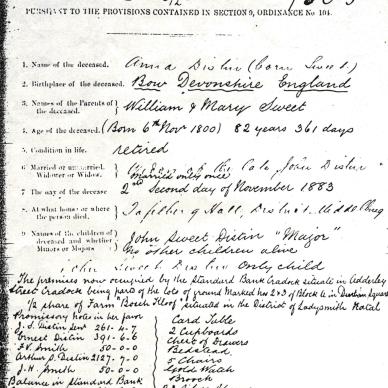 PURSUANT TO THE PROVISIONS CONTAINED IN SECTION 9, ORDINANCE No. 104.
1. Name of the deceased. Anna Distin (born Sweet)
2. Birthplace of the deceased. Bow Devonshire England
3. Names of the Parents of the deceased. William & Mary Sweet
4. Age of the deceased. (Born 6th Nov 1800) 82 years 361 days
5. Condition in life. retired
6. Married or unmarried. Widower or Widow. John Distin
Married only once
7. The day of the decease 2nd Second day of November 1883
8. At what house or where the person died. Hall, District Middelburg
9. Names of the children of deceased and whether Majors or Minors John Sweet Distin "Major"
No other children alive
John Sweet Distin only child
The premises now occupied by the Standard Bank Cradock situate in Adderley
Street Cradock being part of the lots of ground marked Nos 2 & 3 of Block in Durban Square
1/2 share of Farm "Kloof" situated in the District of Ladysmith Natal
Promissory notes in her favor
J. S. Distin Senr 261-4-7
Ernest Distin 391-6-6
F. K. Smith 50-0-0
Arthur S Distin 2127-7-0
J. H. Smith 50-0-0
Balance in Standard Bank
Card Table
2 Cupboards
Chest of Drawers
Bedstead
5 Chairs
Gold Watch
Brooch